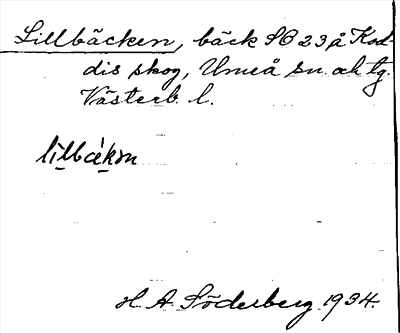 Lillbäcken, bäck SO 23 å Kod-
dis skog, Umeå sn. och tg.
Västerb. l.
H. A. Söderberg 1934.